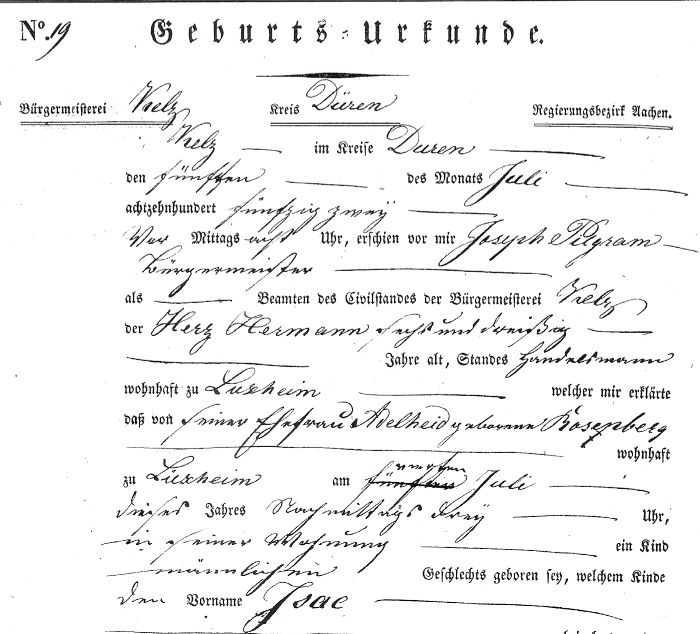 No. 19 Geburts-Urkunde.
Bürgermeisterei Kelz Kreis Düren Regierungsbezirk Aachen.
Kelz im Kreise Duren
den fünften des Monats Juli
achtzehnhundert fünfzig zwey
Vor Mittags acht Uhr, erschien vor mir Joseph Pilgram
Bürgermeister
als Beamten des Civilstandes der Bürgermeisterei Kelz
der Herz Hermann sechs und dreißig
Jahre alt, Standes Handelsmann
wohnhaft zu Luxheim welcher mir erklärte
daß von seiner Ehefrau Adelheid geborene Rosenberg
wohnhaft
zu Lüxheim am vierten Juli
dieses Jahres Nachmittags drey Uhr,
in seiner Wohnung ein Kind
männlichen Geschlechts geboren sey, welchem Kinde
den Vorname Isac